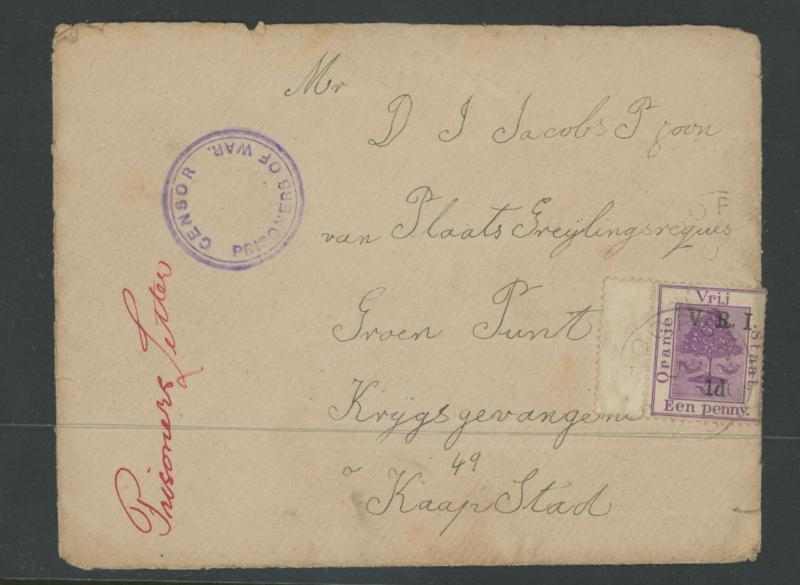 Mr
D J Jacobs P zoon
van Plaats Greijlingsreques
Groen Punt
Krygsgevangene
49
Kaap Stad
CENSOR
PRISONERS OF WAR.
Prisoners Letter
Oranje Vrij Staat.
V. R. I.
1d
Een penny.